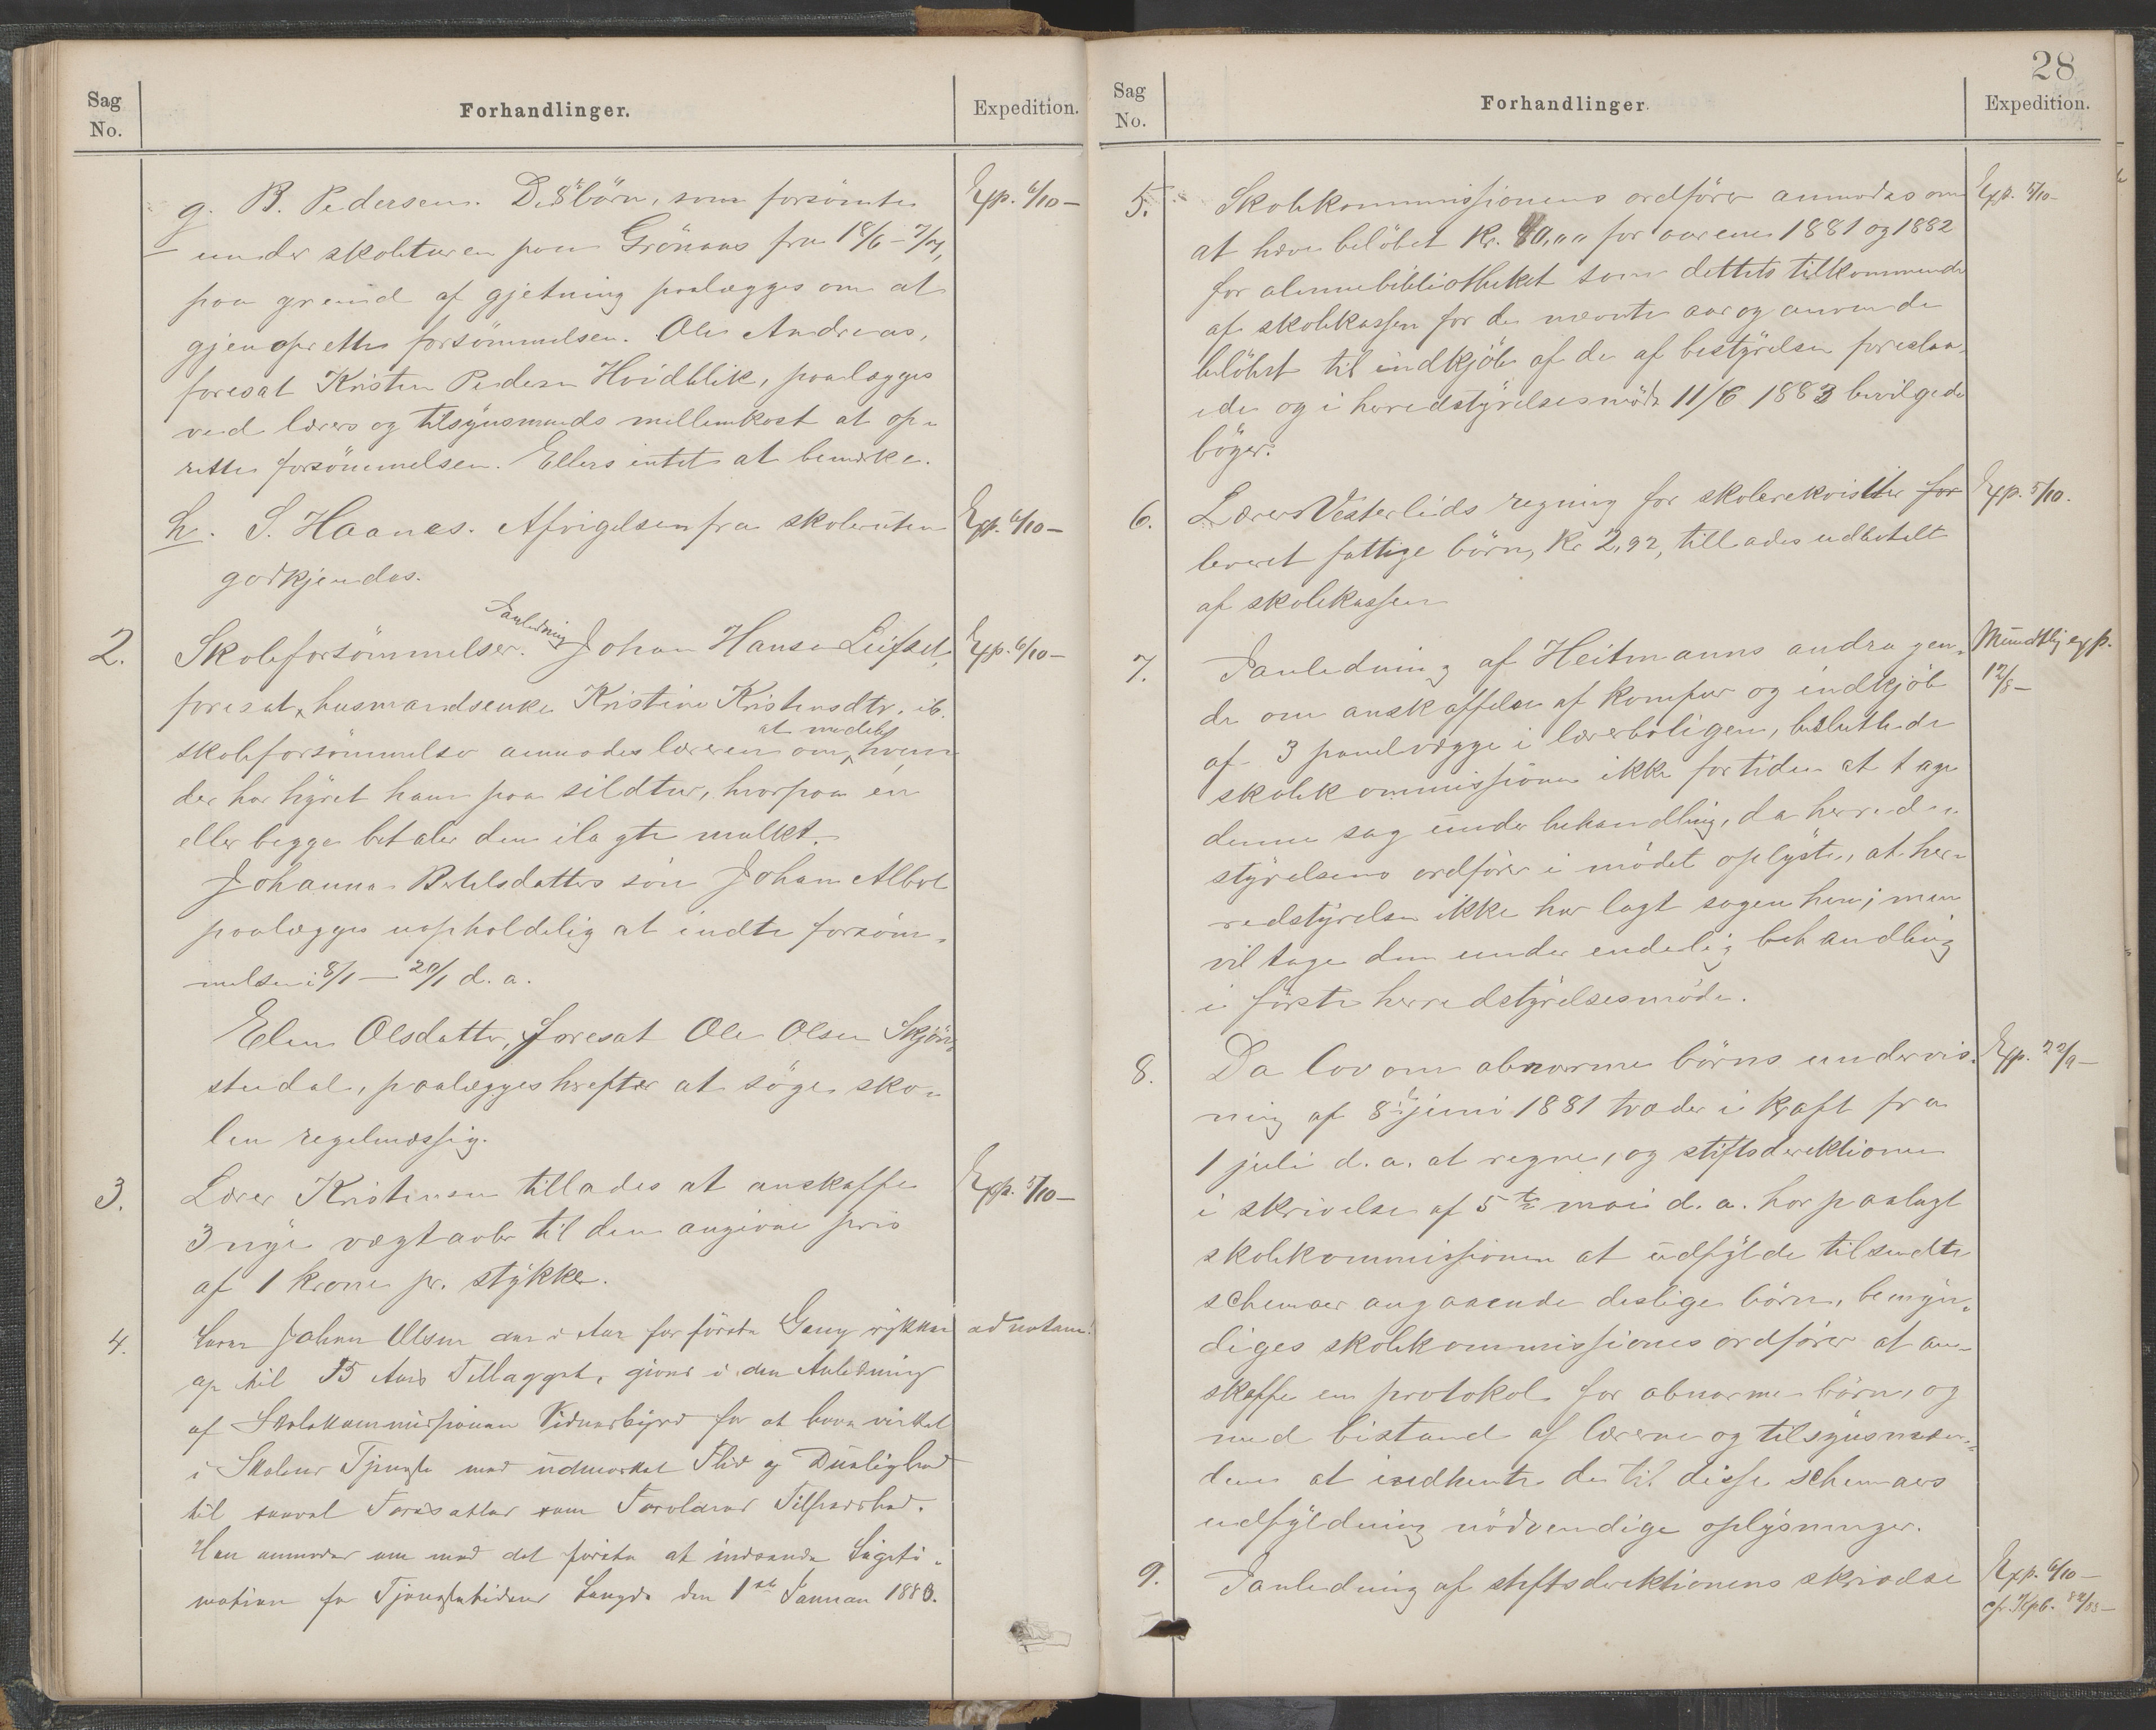 Sag
No.
Forhandlinger.
Expedition.
g. B. Pedersen. De 8 börn, som forsömte
Exp. 6/10 –
under skoleturen paa Grönaas fra 18/6 – 7/7,
paa grund af gjetning paalægges om at
gjenoprette forsömmelsen. Ole Andreas,
foresat Kristen Pedersen Hvidblik, paalægges
ved lærers og tilsynsmands mellemkost at op-
rette forsömmelsen. Ellers intet at bemærke.
h. S. Haanes. Afvigelsen fra skoleruten
Exp. 6/10 –
godkjendes.
2.
Skoleforsömmelser. I anledning Johan Hansen Leifset,
Exp. 6/10 –
foresat, husmandsenke Kristine Kristensdtr. ib.
skoleforsömmelse anmodes læreren om at meddele, hvem
der har hyret ham paa sildtur, hvorpaa én
eller begge betaler den ilagte mulkt.
Johanna Bertelsdatters sön Johan Albert
paalægges uopholdelig at indte forsöm-
melsen i 8/1 – 20/1 d. a.
Elen Olsdatter, foresat Ole Olsen Skjöns-
studal, paalægges herefter at söge sko-
len regelmæssig.
3.
Lærer Kristensen tillades at anskaffe
Exp. 5/10 –
3 nye vægtavler til den angivne pris
af 1 krone pr. stykke.
4.
Lærer Johan Olsen der i Aar for förste Gang rykker
ad notam!
op til 15 Aars Tillægget, gives i den Anledning
af Skolekommissionen Vidnesbyrd for at have virket
i Skolens Tjeneste med udmærket Flid og Duelighed
til saavel Foresattes som Forældres Tilfredshed.
Han anmodes om med det förste at indsende Legiti-
mation for Tjenestetidens Længde den 1ste Januar 1883.
28
Sag
No.
Forhandlinger.
Expedition.
5.
Skolekommissionens ordförer anmodes om
Exp. 5/10 –
at hæve belöbet Kr. 40,"" for aarene 1881 og 1882
for almuebibliotheket som dettets tilkommende
af skolekassen for de nævnte aar og anvende
belöbet til indkjöb af de af bestyrelsen foreslaa-
ede og i herredstyrelsesmöde 11/6 1883 bevilgede
böger.
6.
Lærer Vesterlids regning for skolerekvisiter for
Exp. 5/10.
leveret fattige börn, Kr 2,92, tillades udbetalt
af skolekassen
7.
I anledning af Heitmanns andragen-
Mundtlig exp.
12/8 –
de om anskaffelse af komfur og indkjöb
af 3 panelvægge i lærerboligen, besluttede
skolekommissionen ikke for tiden at tage
denne sag under behandling, da herreds-
styrelsens ordförer i mödet oplyste, at her-
redstyrelsen ikke har lagt sagen hen; men
vil tage den under endelig behandling
i förste herredstyrelsesmöde.
8.
Da lov om abnorme börns undervis-
Exp. 22/9 –
ning af 8de juni 1881 træder i kraft fra
1 juli d. a. at regne, og stiftsdirektionen
i skrivelse af 5te mai d. a. har paalagt
skolekommissionen at udfylde tilsendte
schemaer angaaende deslige börn, bemyn-
diges skolekommissionens ordförer at an-
skaffe en protokol for abnorme börn, og
med bistand af lærerne og tilsynsmæn-
dene at indhente de til disse schemaers
udfyldning nödvendige oplysninger.
9.
I anledning af stiftsdirektionens skrivelse
Exp. 6/10 –
cfr. Kpb.